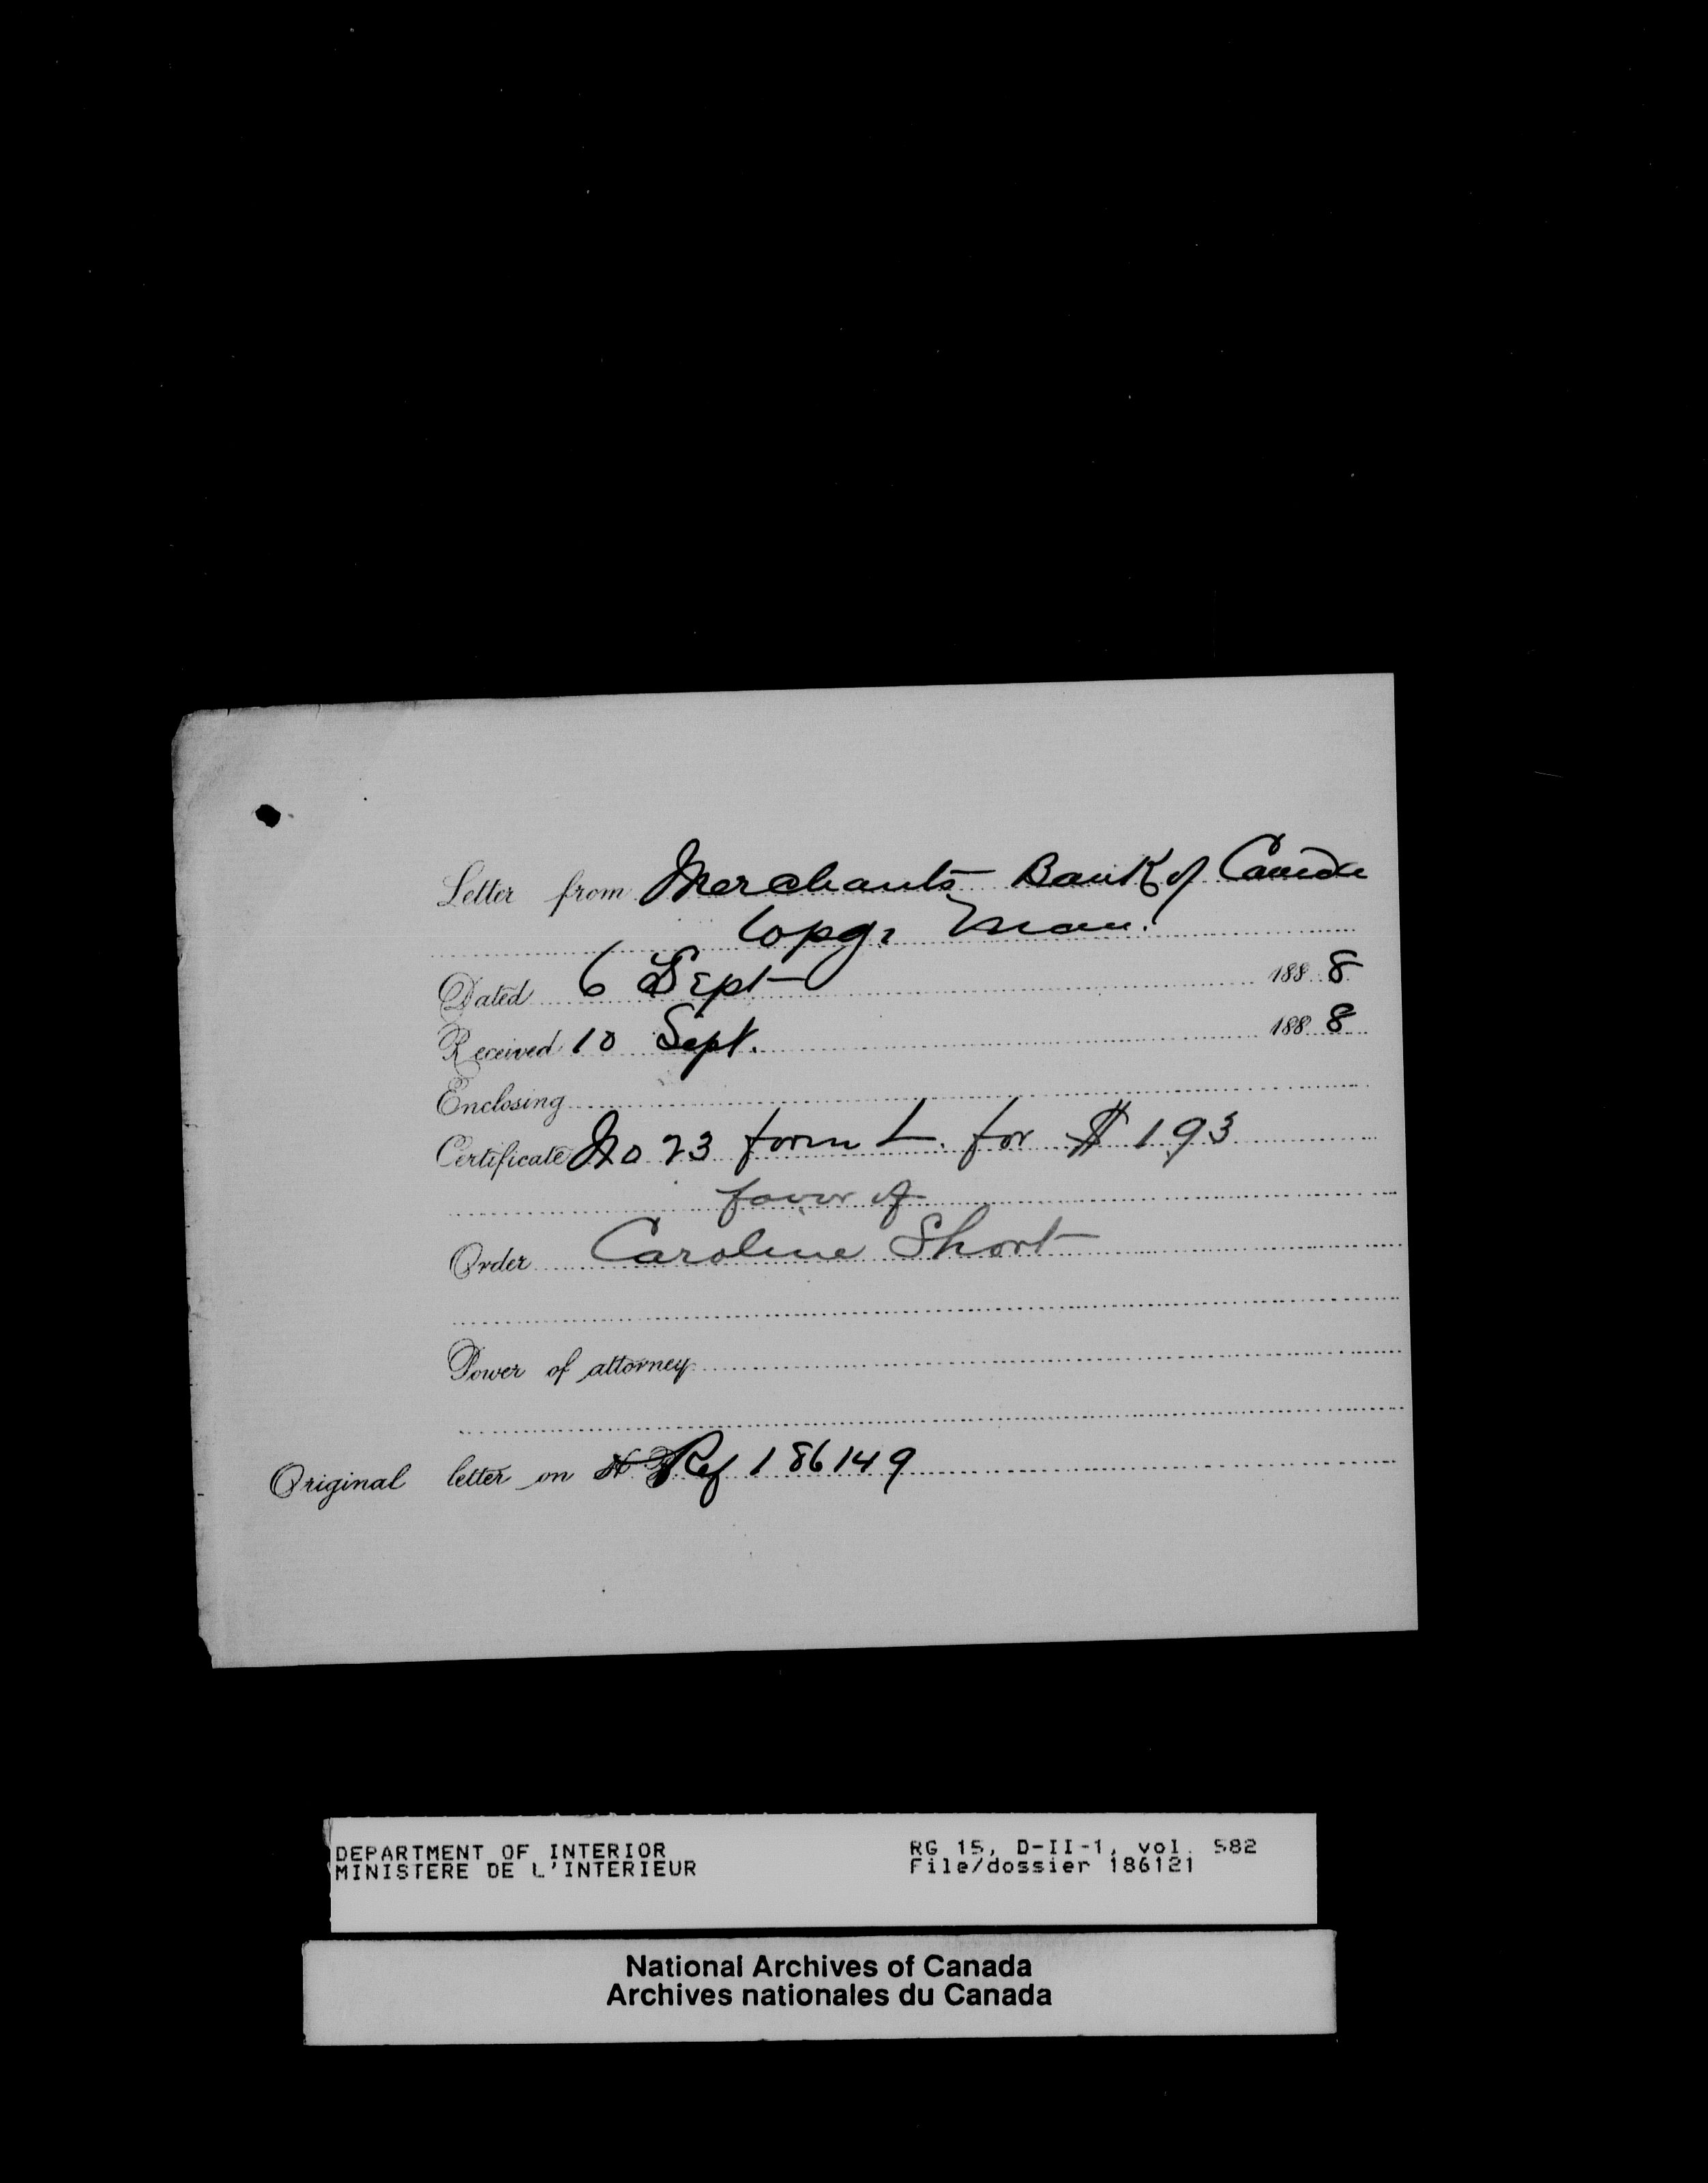 Letter from Merchants Bank of Canada
Wpg, Man.
Dated 6 Sept 1888
Received 10 Sept. 1888
Enclosing
Certificate No 23 form L. for $193
favor of
Order Caroline Short
Power of attorney
Original letter on Ref 186149
DEPARTMENT OF INTERIOR RG 15, D-II-1, vol. 582
MINISTERE DE L'INTERIEUR File/dossier 186121
National Archives of Canada
Archives nationales du Canada